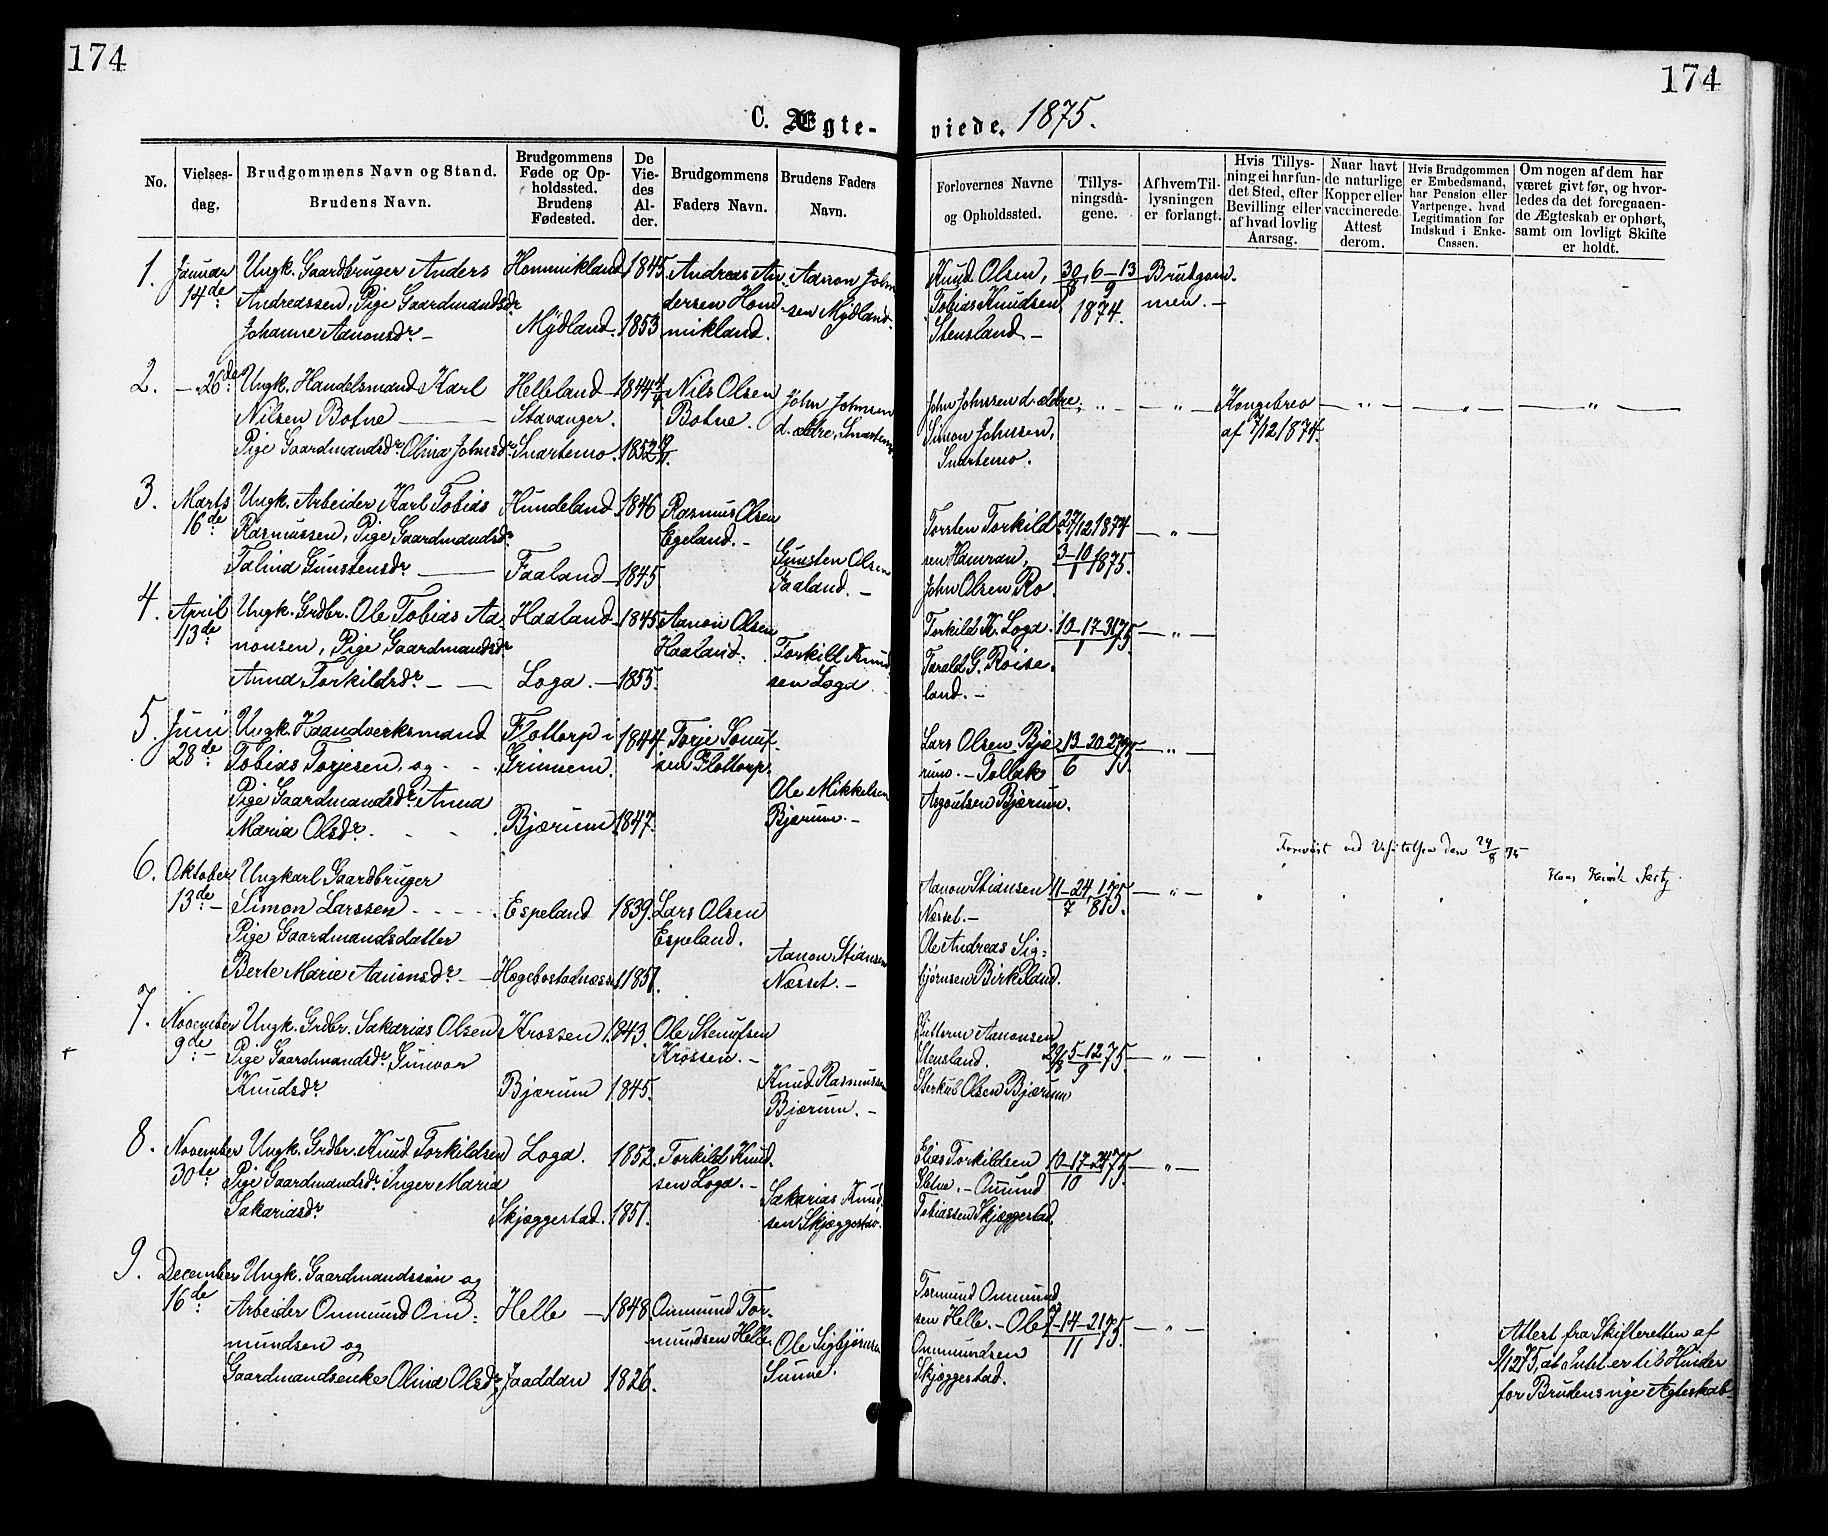 174
174
C. Ægte-
viede. 1875.
No.
Vielses-
dag.
Brudgommens Navn og Stand.
Brudens Navn.
Brudgommens
Føde og Op-
holdssted.
Brudens
Fødested.
De
Vie-
des
Al-
der.
Brudgommens
Faders Navn.
Brudens Faders
Navn.
Forlovernes Navne
og Opholdssted.
Tillys-
ningsda-
gene.
Af hvem Til-
lysningen
er forlangt.
Hvis Tillys-
ning ei har fun-
det Sted, efter
Bevilling eller
af hvad lovlig
Aarsag.
Naar havt
de naturlige
Kopper eller
vaccinerede.
Attest
derom.
Hvis Brudgommen
er Embedsmand,
har Pension eller
Vartpenge, hvad
Legitimation for
Indskud i Enke-
Cassen.
Om nogen af dem har
været gift før, og hvor-
ledes da det foregaaen-
de Ægteskab er ophørt,
samt om lovligt Skifte
er holdt.
1.
Januar
14de
Ungk. Gaardbruger Anders
Andreassen, Pige Gaardmandsdr
Johanne Aanonsdr –
Hommikland
Mydland.
1845
1853
Andreas An-
dersen Hom-
mikland.
Aanon John-
sen Mydland.
Knud Olsen,
Tobias Knudsen
Stensland. –
30/8, 6–13/9
1874.
Brudgom-
men. –
2.
– 26de
Ungk. Handelsmand Karl
Nilsen Botne –
Pige Gaardmandsdr Olina Johnsdr
Helleland –
Stavanger.
Snartemo.
1844
1852
Nils Olsen
Botne.
John Johnsen
d. ældre, Snartemo
John Johnsen d. ældre,
Simon Johnsen,
Snartemo.
– „ –
– „ –
Kongebrev
af 7/12 1874.
– „ –
– „ –
– „ –
3.
Marts
16de
Ungk. Arbeider Karl Tobias
Rasmussen, Pige Gaardmandsdr
Talina Gunstensdr –
Hundeland.
Faaland –
1846
1845
Rasmus Olsen
Egeland. –
Gunsten Olsen
Faaland. –
Torsten Torkild-
sen Hamran,
John Olsen Ro.
27/12 1874
3–10/1 1875.
– „ –
4.
April
13de
Ungk. Grdbr. Ole Tobias Aa-
nonsen, Pige Gaardmandsdr
Anna Torkildsdr – –
Haaland –
Loga. –
1845
1855.
Aanon Olsen
Haaland.
Torkild Knud-
sen Loga
Torkild K. Loga.
Tarald G. Røise-
land. –
10–17–31/1 75
– „ –
5.
Juni
28de
Ungk. Haandverksmand
Tobias Torjesen, og
Pige Gaardmandsdr Anna
Maria Olsdr.
Flottorp i
Grinnem.
Bjærum
1844.
1847.
Torje
sen Flottorp.
Ole Mikkelsen
Bjærum. –
Lars Olsen Bjæ-
rum. – Tollak
Asgoutsen Bjærum.
13–20–27/6 75
– „ –
6.
Oktober
13de –
Ungkarl Gaardbruger
Simon Larssen
Pige Gaardmandsdatter
Berte Marie Aanonsdr –
Espeland
Hægebostadnæsse
1839.
1851.
Lars Olsen
Espeland.
Aanon Stiansen
Næsset. –
Aanon Stiansen
Næsset. –
Ole Andreas Sig-
bjørnsen Birkeland.
11–24/7, 1/8 75.
– „ –
Forevist ved Visitatsen den 24/8 75
7.
November
9de –
Ungk. Grdbr. Sakarias Olsen
Pige Gaardmandsdr Gunvor
Knudsdr
Krossen
Bjærum
1843.
1845.
Ole Stenufsen
Krossen. –
Knud Rasmussen
Bjærum. –
Gutterm Aanonsen
Stensland.
Sterkul Olsen Bjærum
29/8 5–12/9 75
– „ –
8.
November
30te
Ungk. Grdbr. Knud Torkildsen
Pige Gaardmandsdr Inger Maria
Sakariasdr
Loga.
Skjæggestad.
1852.
1851.
Torkild Knud-
sen Loga. –
Sakarias Knud-
sen Skjæggestad.
Elias Torkildsen
– Omund
Tobiassen Skjæggestad.
10–17–24/10 75
– „ –
9.
December
16de
Ungk. Gaardmandssøn og
Arbeider Ommund Om-
mundsen og
Gaardmandsenke Olina Olsdr
Helle –
Jaaddan
1848.
1826.
Ommund Tor-
mundsen Helle.
Ole Sigbjørnsen
Sunne.
Tormund Ommund-
sen Helle. – Ole
Ommundsen
Skjæggestad.
7–14–21/11 75
– „ –
Attest fra Skifteretten af
9/12 75, at Intet er til Hinder
for Brudens nye Ægteskab